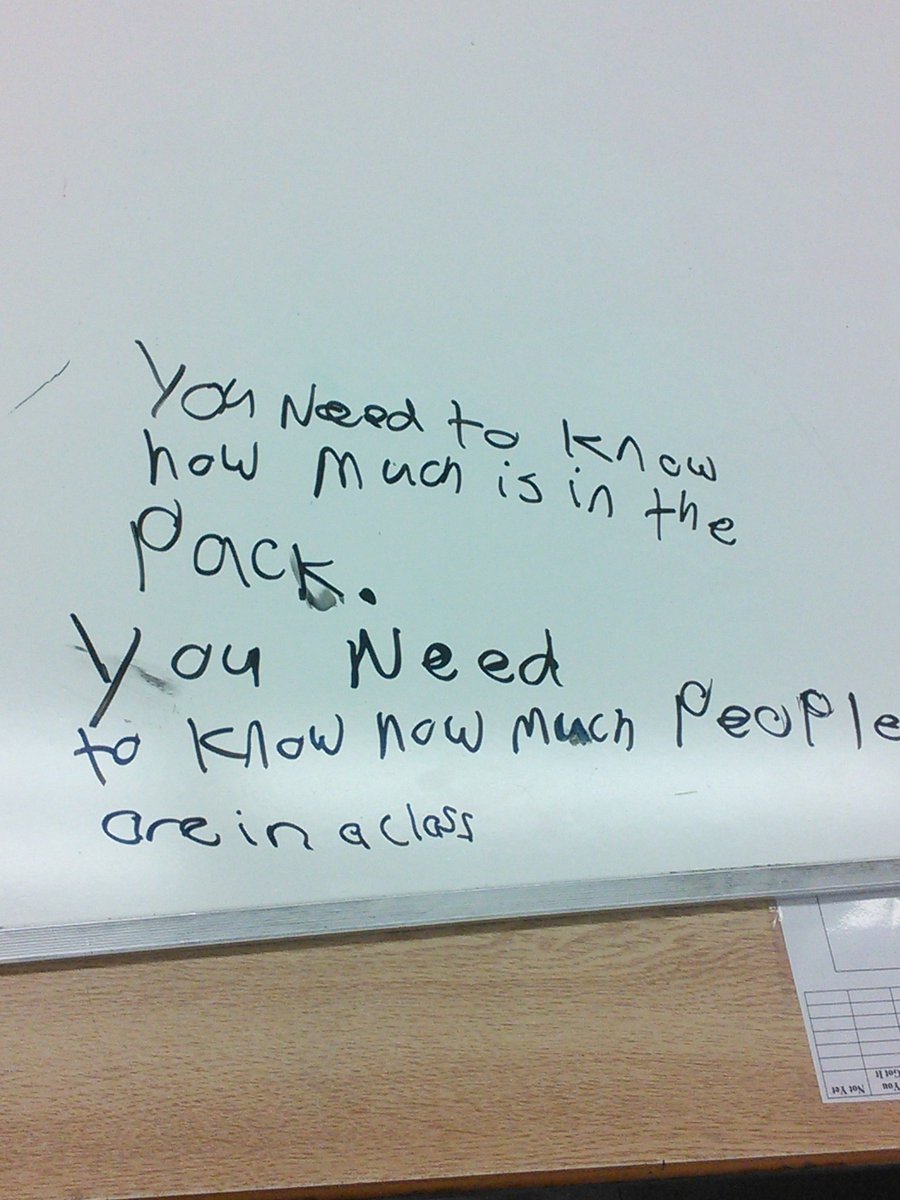 You Need to know
how much is in the
Pack.
You Need
to know how much People
are in a class
You
Got It
Not Yet